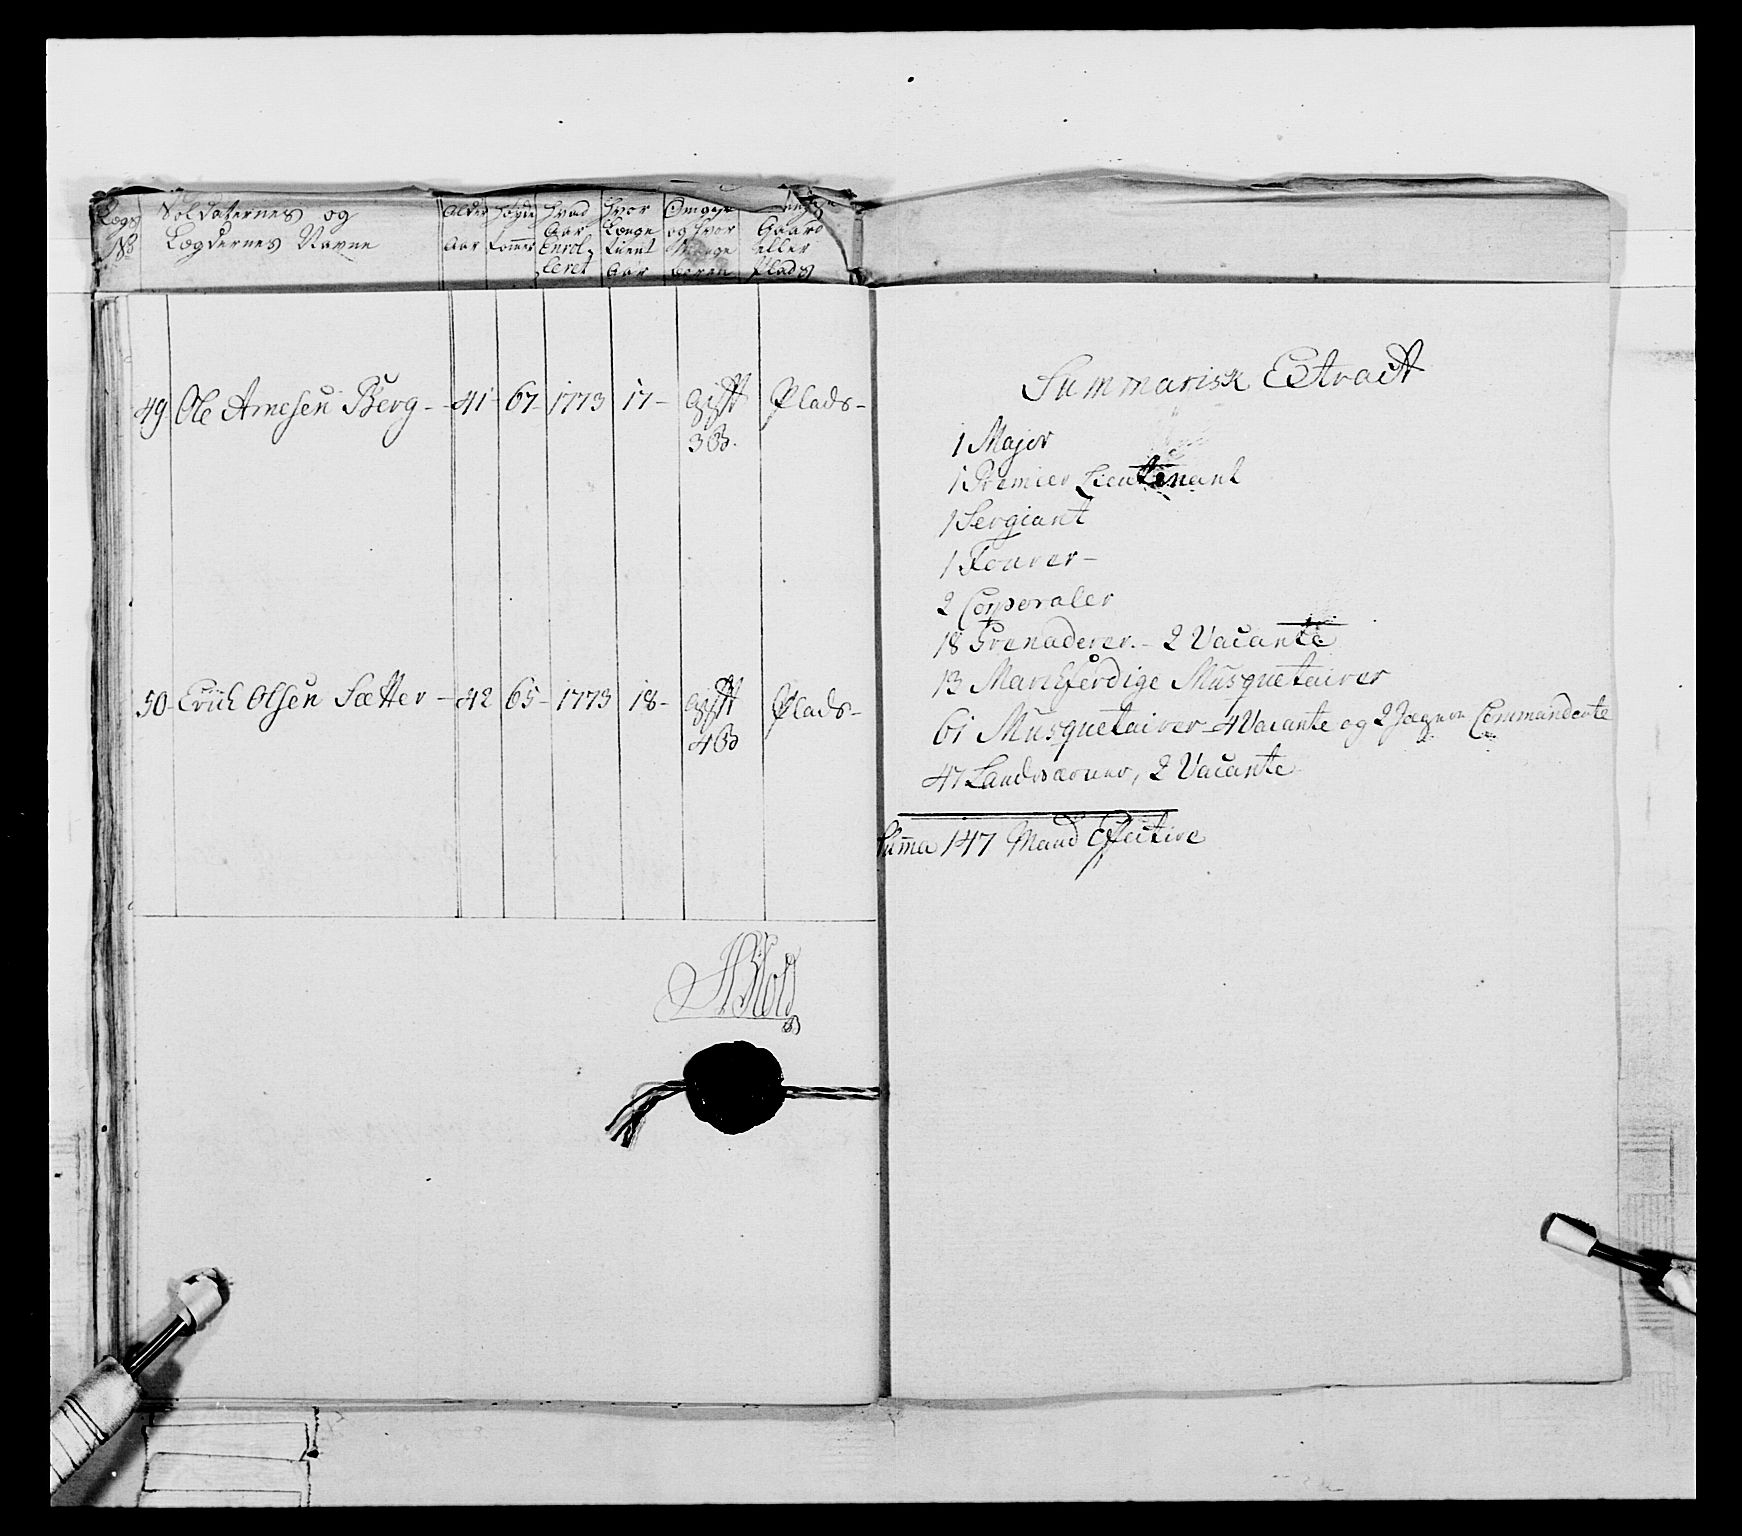 Lægs Soldaternes og Alder Høyde Hvad Hvor Om gift
No Lægdernes Navne Aar Tommer Aar Længe og hvor Gaard
Enrol- Tient Mange eller
leret Aar Børen Plads
49 Ole Arnesen Berg - 41 - 67 - 1773 17 - gift Plads -
3 B.
50 - Erich Olsen Sætter - 42 65 - 1773 18 - gift Plads -
4 B
Summarisk Extract
1 Major
1 Premier Lieutenant
1 Sergiant
1 Fourer -
2 Corporaler
18 Grenaderer. - 2 Vacante
13 Marchferdige Musquetairer
61 Musquetairer - 4 Vacante og 2 Commanderte
47 Landværner, 2 Vacante
Summa 147 Mand Effective